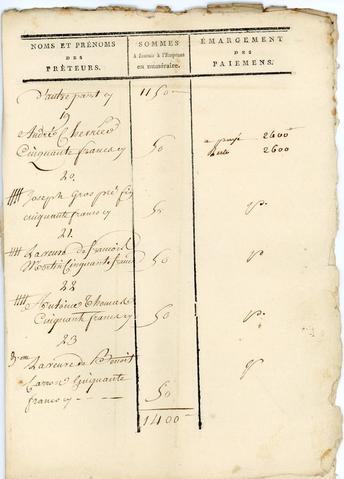 NOMS ET PRÉNOMS
DES
PRÊTEURS.
SOMMES
à fournir à l'Emprunt
en numéraire.
ÉMARGEMENT
DES
PAIEMENS.
D'autre part cy 1150
19
André
Cinquante francs cy 50 a payé 2600
2600
20.
Joseph Gros
cinquante francs cy 50
21.
La veuve de François
Martin Cinquante francs 50
22
Antoine Thomas
Cinquante francs cy 50
23
La veuve de Benoit
Carron Cinquante
francs cy 50
1400